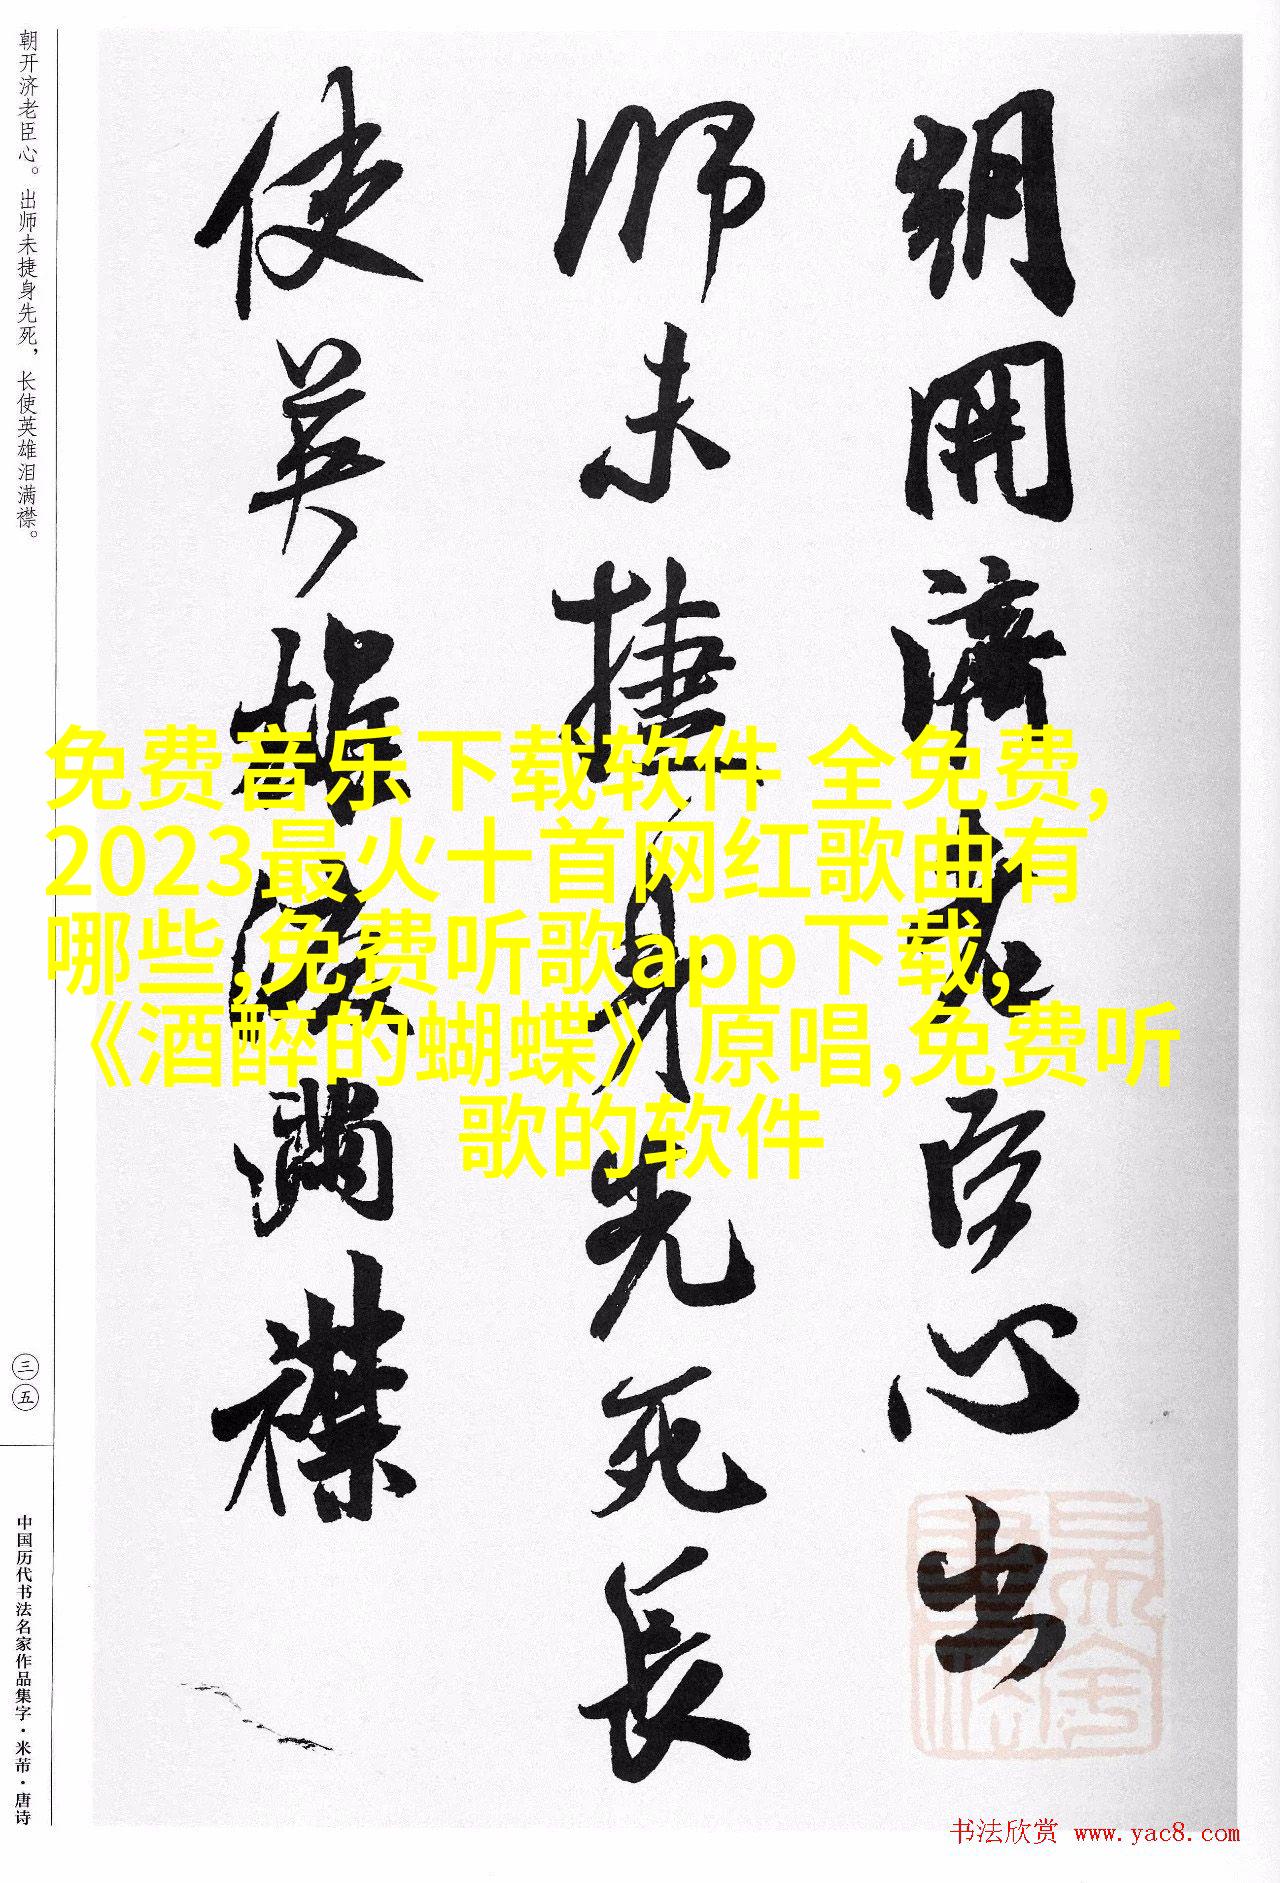 朝開濟老臣心出
師未捷身先死長
使英雄淚滿襟
朝开济老臣心。出师未捷身先死，长使英雄泪满襟。
三五
中国历代书法名家作品集字·米芾·唐诗
免费音乐下载软件 全免费,
2023最火十首网红歌曲有
哪些,免费听歌app下载,
《酒醉的蝴蝶》原唱,免费听
歌的软件
书法欣赏 www.yac8.com